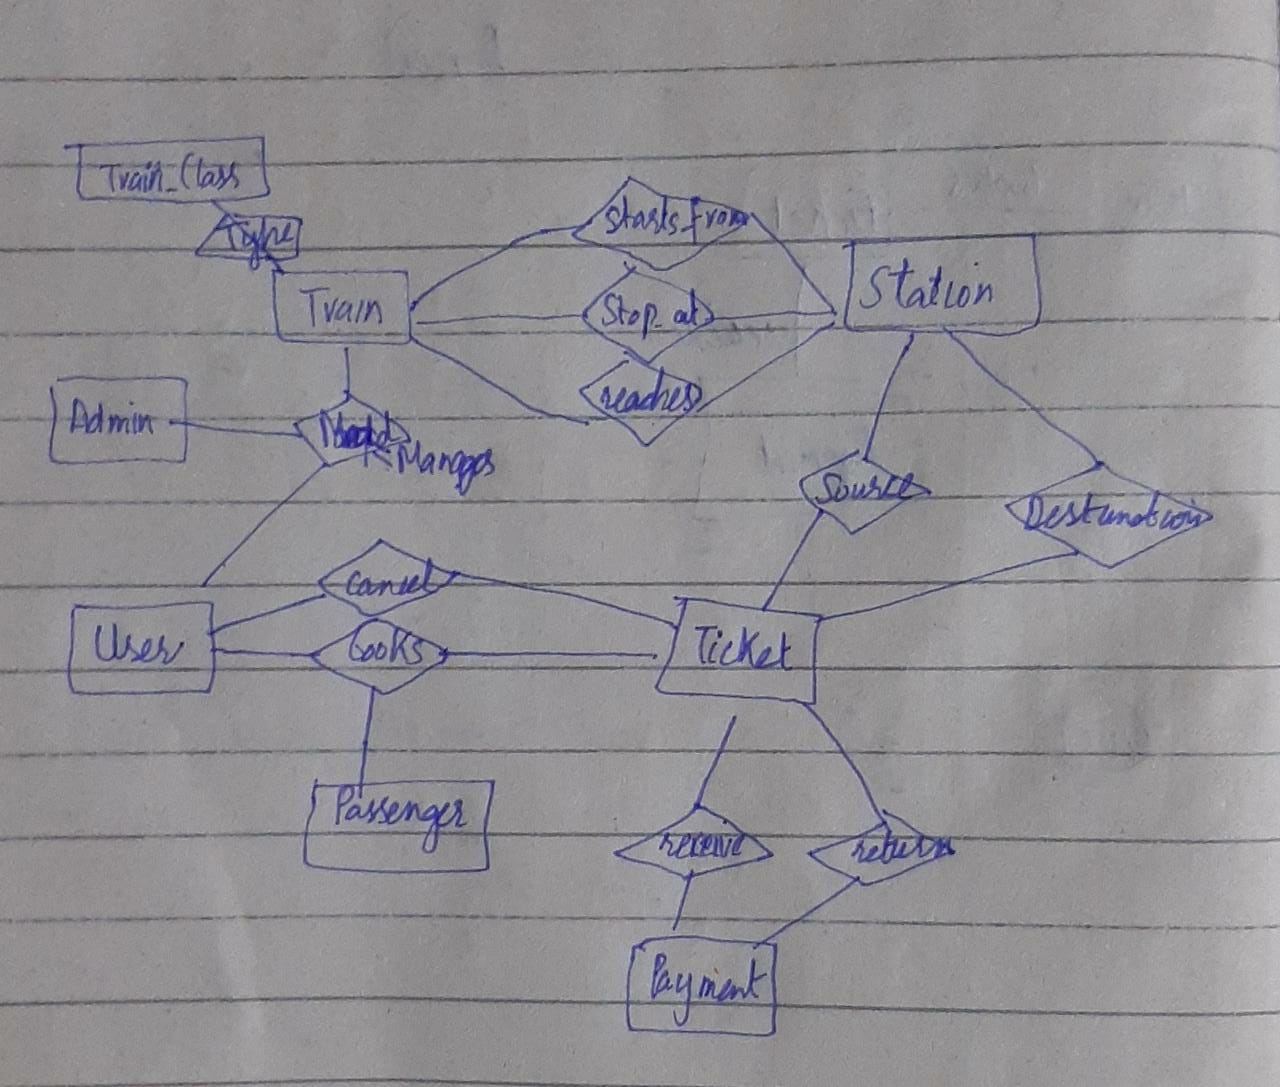 Train_Class
Type
starts_from
Station
Train
Stop_at
reaches
Admin
Manages
Source
Destination
cancel
User
books
Ticket
Passenger
receive
return
Payment